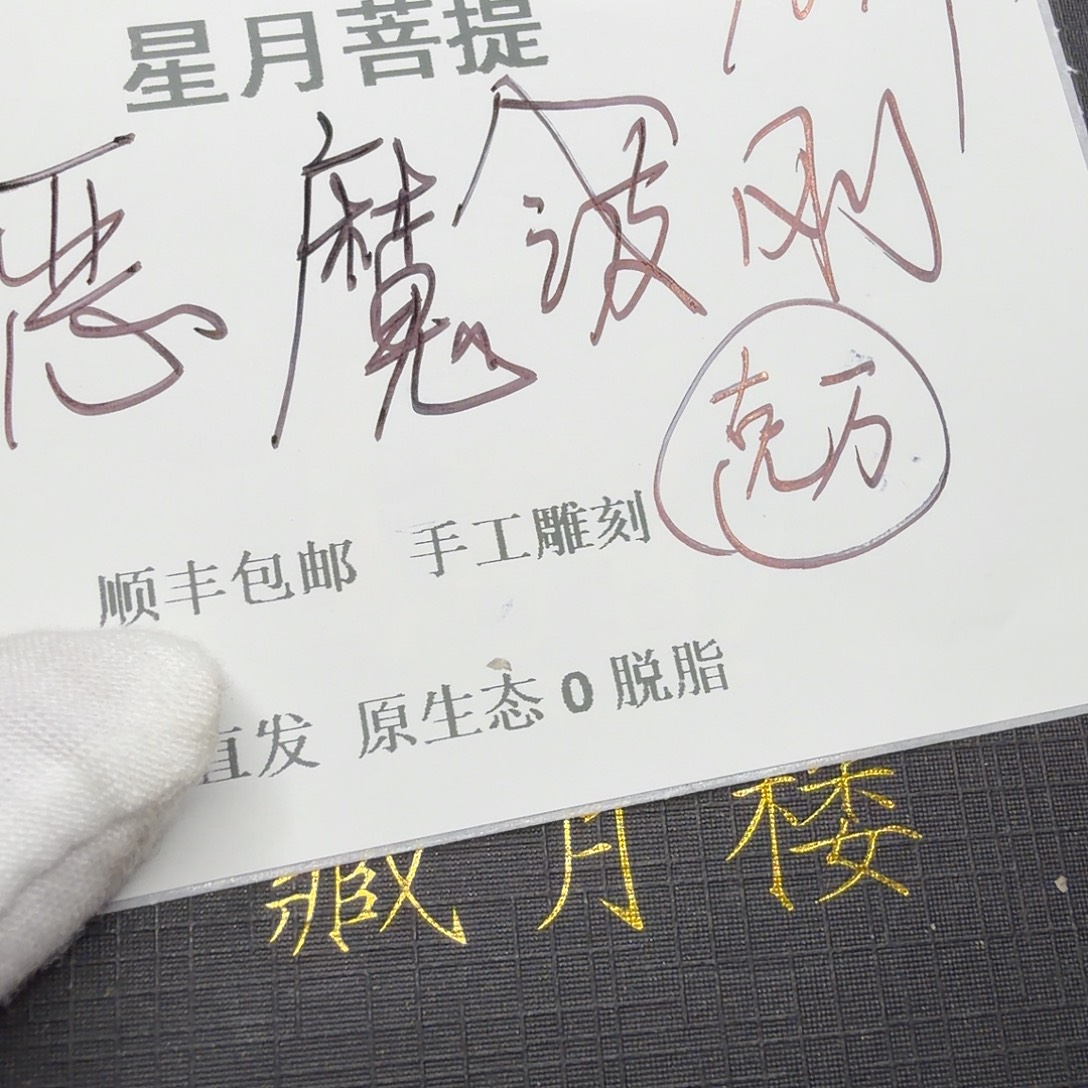 星月菩提
恶魔金波刚
克万
顺丰包邮 手工雕刻
直发 原生态0脱脂
藏月楼